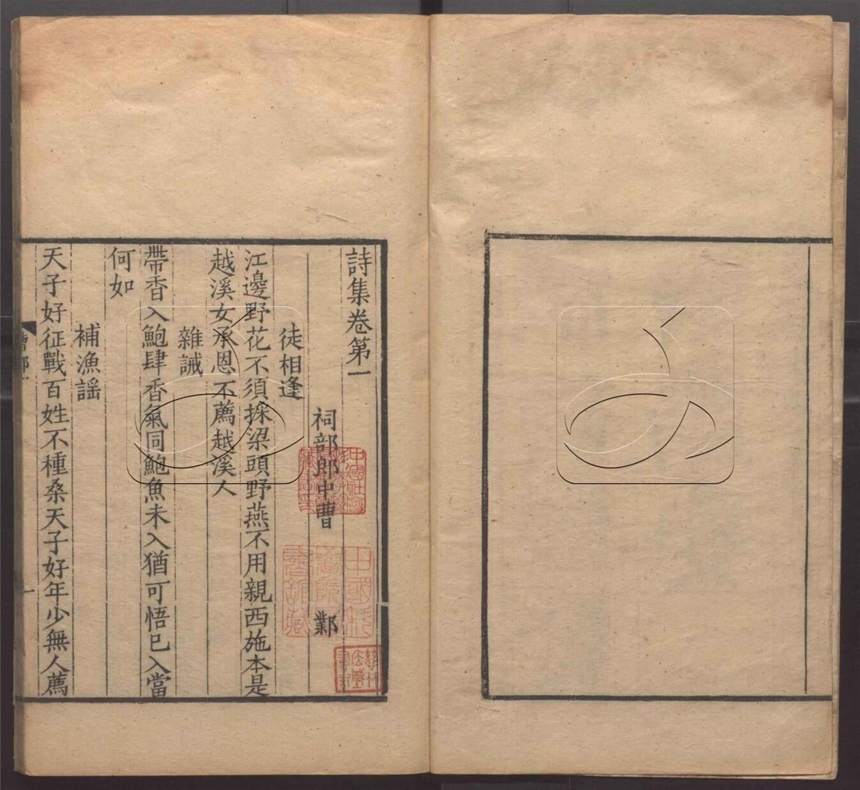 詩集卷第一
祠部郎中曹 鄴
徒相逢
江邊野花不須採梁頭野燕不用親西施本是
越溪女承恩不薦越溪人
雜誡
帶香入鮑肆香氣同鮑魚未入猶可悟已入當
何如
補漁謡
天子好征戰百姓不種桑天子好年少無人薦